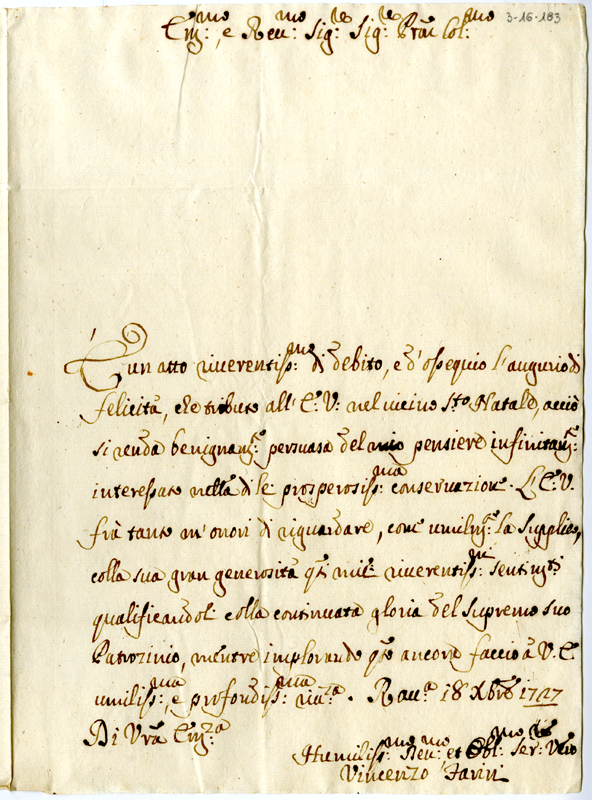 3-16-183
Em:mo, e Reu:mo Sig:re Sig:re Prān Col:mo
È un atto riuerentiss:mo di debito, e d'ossequio l'augurio di
felicità, che tributo all' E: V: nel uicino S:to Natale, acciò
si renda benignam:te persuasa del mio pensiere infinitam:te
interessato nella di lei prosperosiss:ma conseruazione. L'E: V.
frà tanto m'onori di riguardare, come umilm:te la supplico,
colla sua gran generosità q:ti miei riuerentiss:mi sentim:ti
qualificandoli colla continuata gloria del Supremo suo
Patrozinio, mentre implorando q:to ancora faccio à V. E.
umiliss:ma, e profondiss:ma riu:za. Rau:a 18 Xbre 1727
Di Vrā Em:za
Humiliss:mo Reu:mo et Obl:mo Ser:re Vero
Vincenzo Farini